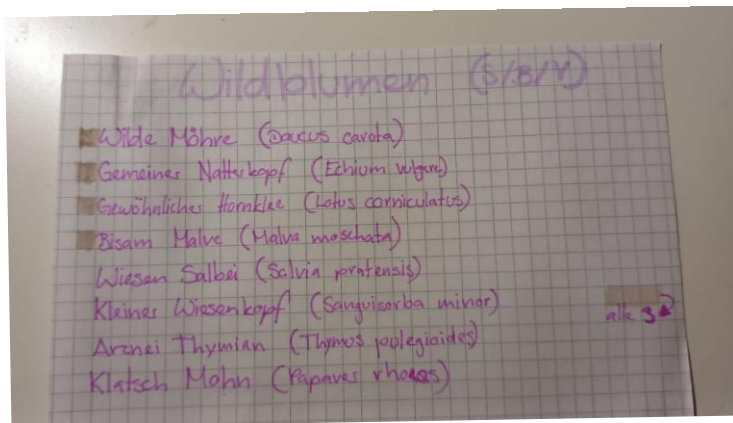 Wildblumen (S/B/V)
Wilde Möhre (Daucus carota)
Gemeiner Natterkopf (Echium vulgare)
Gewöhnlicher Hornklee (Lotus corniculatus)
Bisam Malve (Malva moschata)
Wiesen Salbei (Salvia pratensis)
Kleiner Wiesenkopf (Sanguisorba minor)
alle 3
Arznei Thymian (Thymus pulegioides)
Klatsch Mohn (Papaver rhoeas)